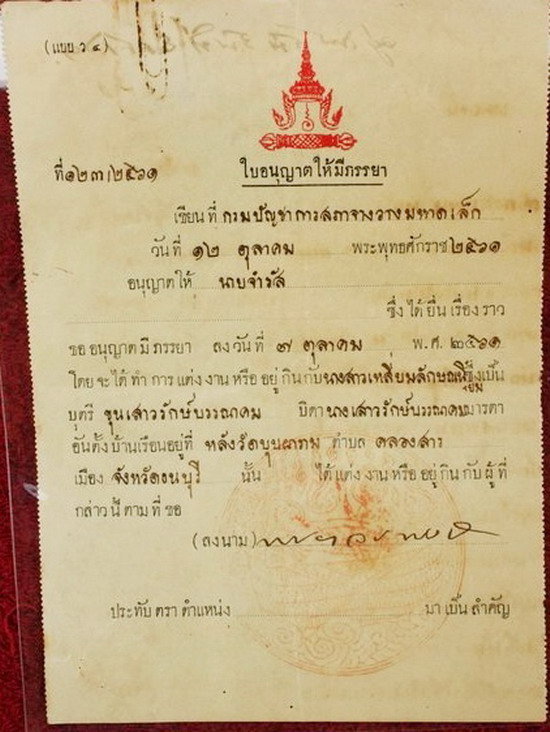 (แบบ ว ๔)
ที่ ๑๒๓/๒๔๖๑
ใบอนุญาตให้มีภรรยา
เขียน ที่ กรมบัญชาการสภาจางวางมหาดเล็ก
วัน ที่ ๑๒ ตุลาคม พระพุทธศักราช ๒๔๖๑
อนุญาตให้ นายจำรัส
ซึ่ง ได้ ยื่น เรื่อง ราว
ขอ อนุญาต มี ภรรยา ลง วัน ที่ ๗ ตุลาคม พ.ศ. ๒๔๖๑
โดย จะ ได้ ทำ การ แต่ง งาน หรือ อยู่ กิน กับ นางสาวเหลี่ยมลักษณ์ ซึ่งเป็น
บุตรี ขุนเสาวรักษ์บรรณาคม บิดา นางเสาวรักษ์บรรณาคม มารดา
อัน ตั้ง บ้านเรือนอยู่ที่ หลังวัด ตำบล คลองสาร
เมือง จังหวัดธนบุรี นั้น ได้ แต่ง งาน หรือ อยู่ กิน กับ ผู้ ที่
กล่าว นี้ ตาม ที่ ขอ
(ลงนาม)
ประทับ ตรา ตำแหน่ง มา เป็น สำคัญ